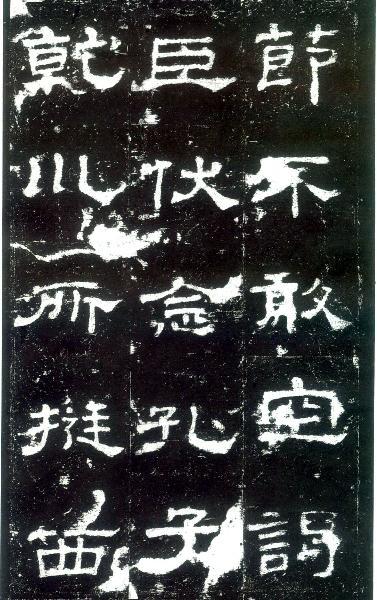 節不敢空謁
臣伏念孔子
乾川所挺西